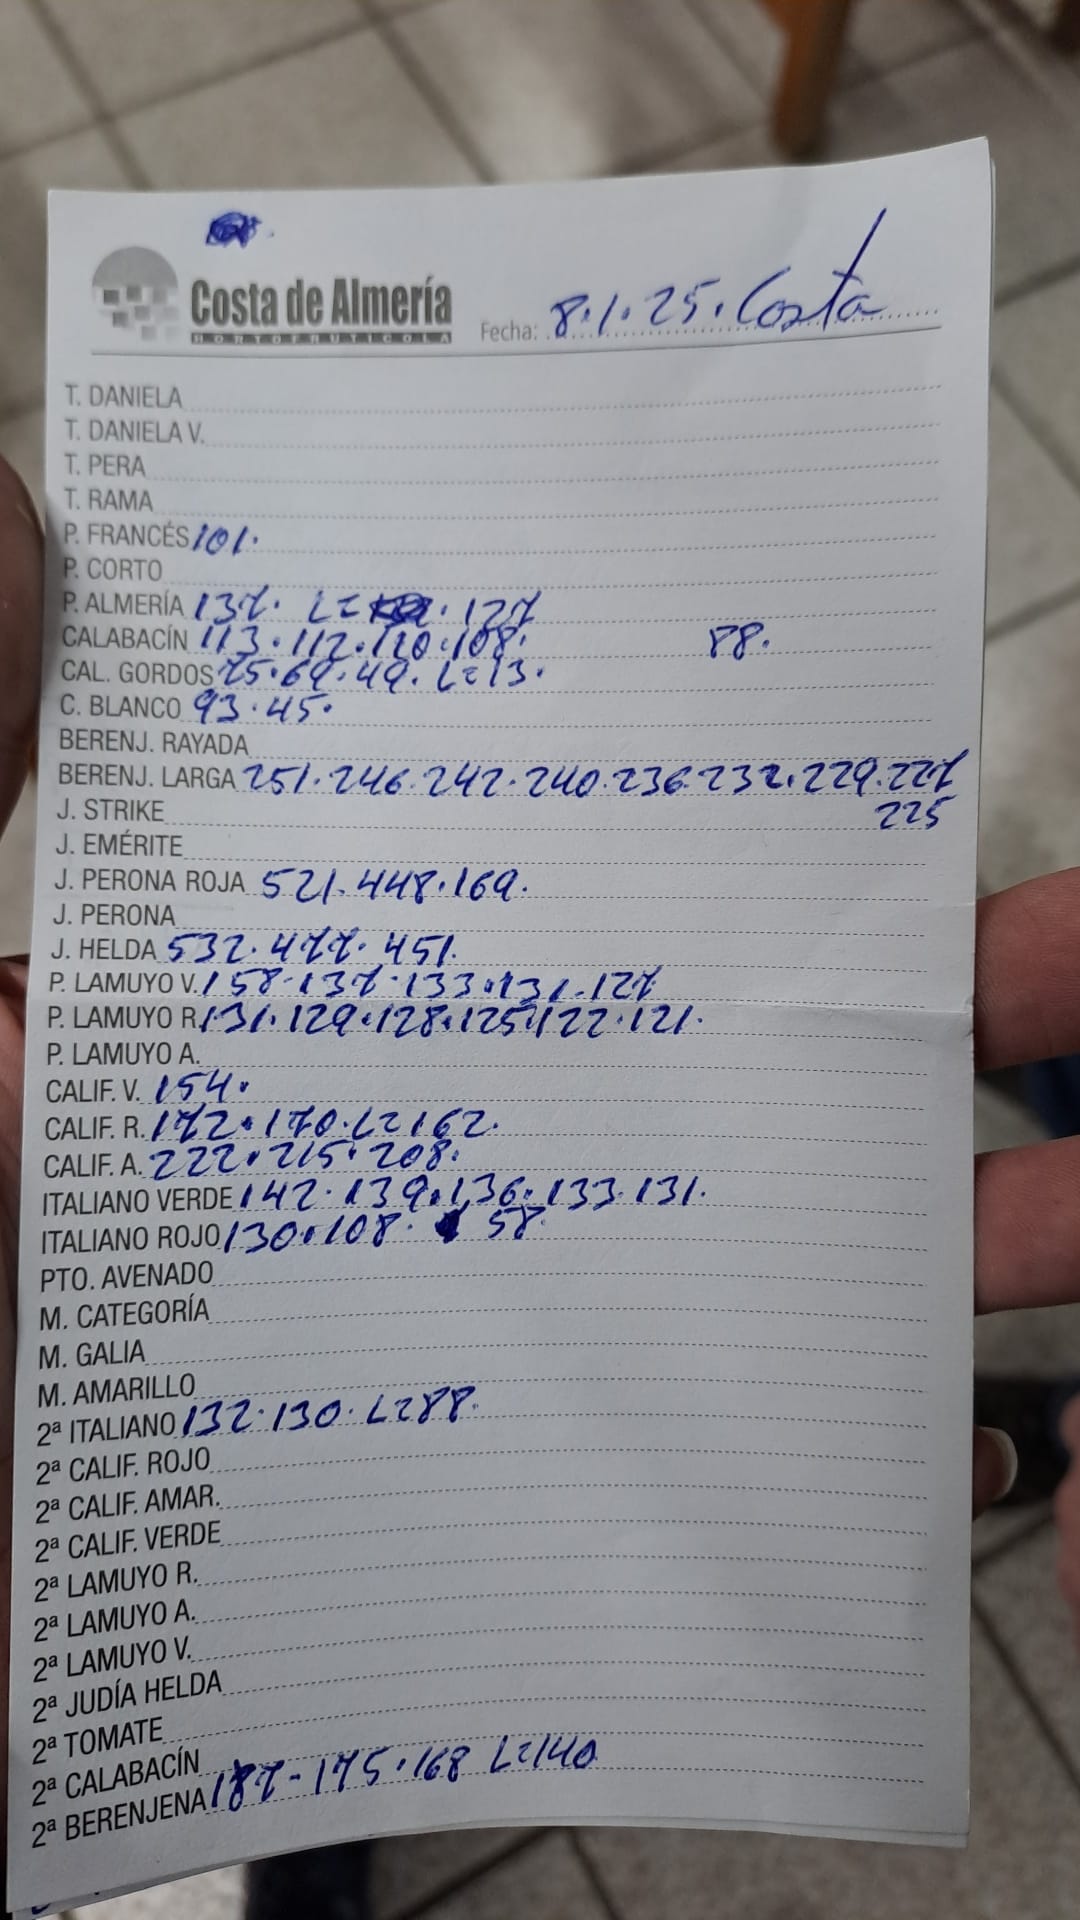 Costa de Almería
HORTOFRUTICOLA
Fecha: 8.1.25. Costa
T. DANIELA
T. DANIELA V.
T. PERA
T. RAMA
P. FRANCÉS 101.
P. CORTO
P. ALMERÍA 137. L= . 127
CALABACÍN 113. 112. 110. 108. 88.
CAL. GORDOS 75. 69. 49. L=13.
C. BLANCO 93. 45.
BERENJ. RAYADA
BERENJ. LARGA 251. 246. 242. 240. 236. 232. 229. 227
J. STRIKE 225
J. EMÉRITE
J. PERONA ROJA 521. 448. 169.
J. PERONA
J. HELDA 532. 477. 451.
P. LAMUYO V. 158. 137. 133. 131. 127
P. LAMUYO R. 131. 129. 128. 125. 122. 121.
P. LAMUYO A.
CALIF. V. 154.
CALIF. R. 172. 170. L=162.
CALIF. A. 222. 215. 208.
ITALIANO VERDE 142. 139. 136. 133. 131.
ITALIANO ROJO 130. 108. 58.
PTO. AVENADO
M. CATEGORÍA
M. GALIA
M. AMARILLO
2ª ITALIANO 132. 130. L=88.
2ª CALIF. ROJO
2ª CALIF. AMAR.
2ª CALIF. VERDE
2ª LAMUYO R.
2ª LAMUYO A.
2ª LAMUYO V.
2ª JUDÍA HELDA
2ª TOMATE
2ª CALABACÍN
2ª BERENJENA 187 - 175. 168 L=140